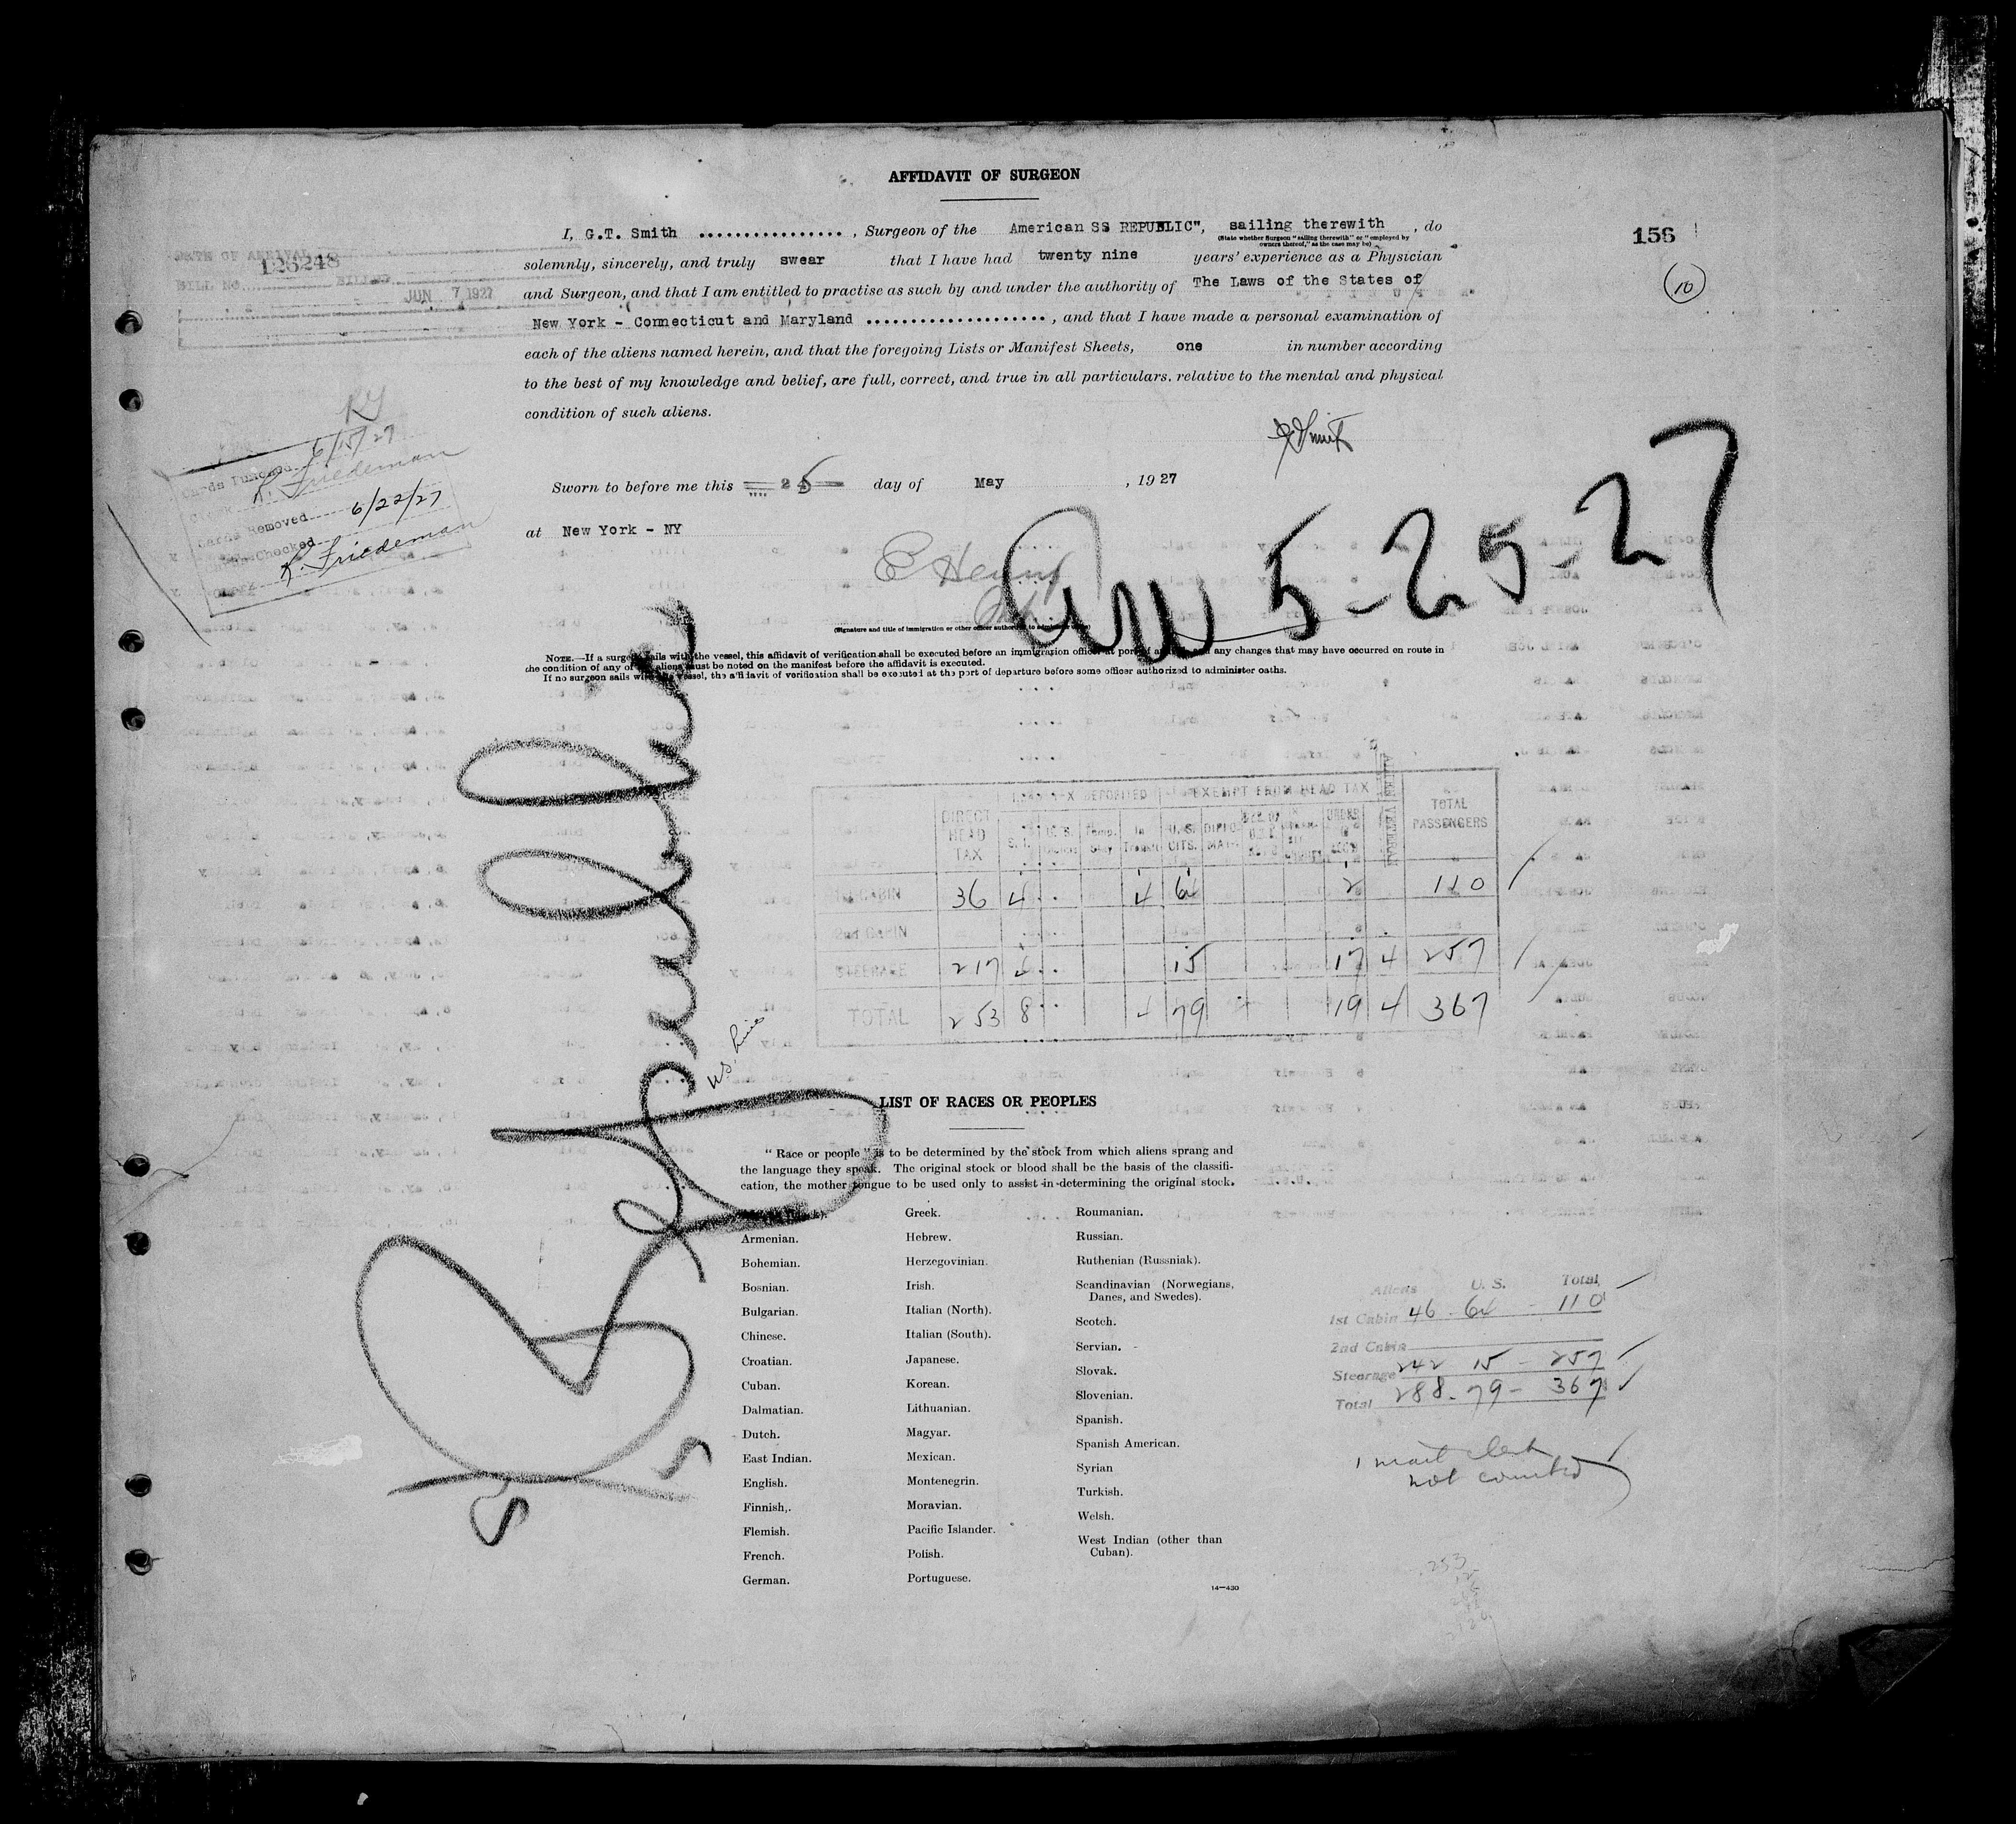 AFFIDAVIT OF SURGEON
I, G.T. Smith ................, Surgeon of the American SS REPUBLIC", sailing therewith, do
(State whether Surgeon "sailing therewith" or "employed by
owners thereof," as the case may be)
solemnly, sincerely, and truly swear that I have had twenty nine years' experience as a Physician
and Surgeon, and that I am entitled to practise as such by and under the authority of The Laws of the States of
New York - Connecticut and Maryland ...................., and that I have made a personal examination of
each of the aliens named herein, and that the foregoing Lists or Manifest Sheets, one in number according
to the best of my knowledge and belief, are full, correct, and true in all particulars. relative to the mental and physical
condition of such aliens.
156
10
DATE OF ARRIVAL
126248
BILL NO. BILLED
JUN 7 1927
Cards Punched 6/15/27
Clerk K. Friedeman
Cards Removed 6/22/27
Checked
K. Friedeman
Sworn to before me this 25 day of May, 1927
at New York - NY
Arr 5-25-27
E Henry
(Signature and title of immigration or other officer authorized to administer oaths)
NOTE.—If a surgeon sails with the vessel, this affidavit of verification shall be executed before an immigration officer at port of any changes that may have occurred en route in
the condition of any of the aliens must be noted on the manifest before the affidavit is executed.
If no surgeon sails with the vessel, the affidavit of verification shall be executed at the port of departure before some officer authorized to administer oaths.
SS Republic
U.S. Line
DEPOSITED EXEMPT FROM HEAD TAX
DIRECT HEAD TAX S.I. Temp. Stay In Transit U.S. CITS. DIPLO-MATS UNDER ALIEN VETERAN TOTAL PASSENGERS
CABIN 36 4 4 64 2 110
2nd CABIN
STEERAGE 217 4 15 17 4 257
TOTAL 253 8 4 79 19 4 367
LIST OF RACES OR PEOPLES
"Race or people" is to be determined by the stock from which aliens sprang and
the language they speak. The original stock or blood shall be the basis of the classifi-
cation, the mother tongue to be used only to assist in determining the original stock.
Armenian.
Bohemian.
Bosnian.
Bulgarian.
Chinese.
Croatian.
Cuban.
Dalmatian.
Dutch.
East Indian.
English.
Finnish.
Flemish.
French.
German.
Greek.
Hebrew.
Herzegovinian.
Irish.
Italian (North).
Italian (South).
Japanese.
Korean.
Lithuanian.
Magyar.
Mexican.
Montenegrin.
Moravian.
Pacific Islander.
Polish.
Portuguese.
Roumanian.
Russian.
Ruthenian (Russniak).
Scandinavian (Norwegians,
Danes, and Swedes).
Scotch.
Servian.
Slovak.
Slovenian.
Spanish.
Spanish American.
Syrian
Turkish.
Welsh.
West Indian (other than
Cuban).
14—430
Aliens U. S. Total
1st Cabin 46 - 64 - 110
2nd Cabin
Steerage 242 15 - 257
Total 288 - 79 - 367
1 mail clerk
not counted
253